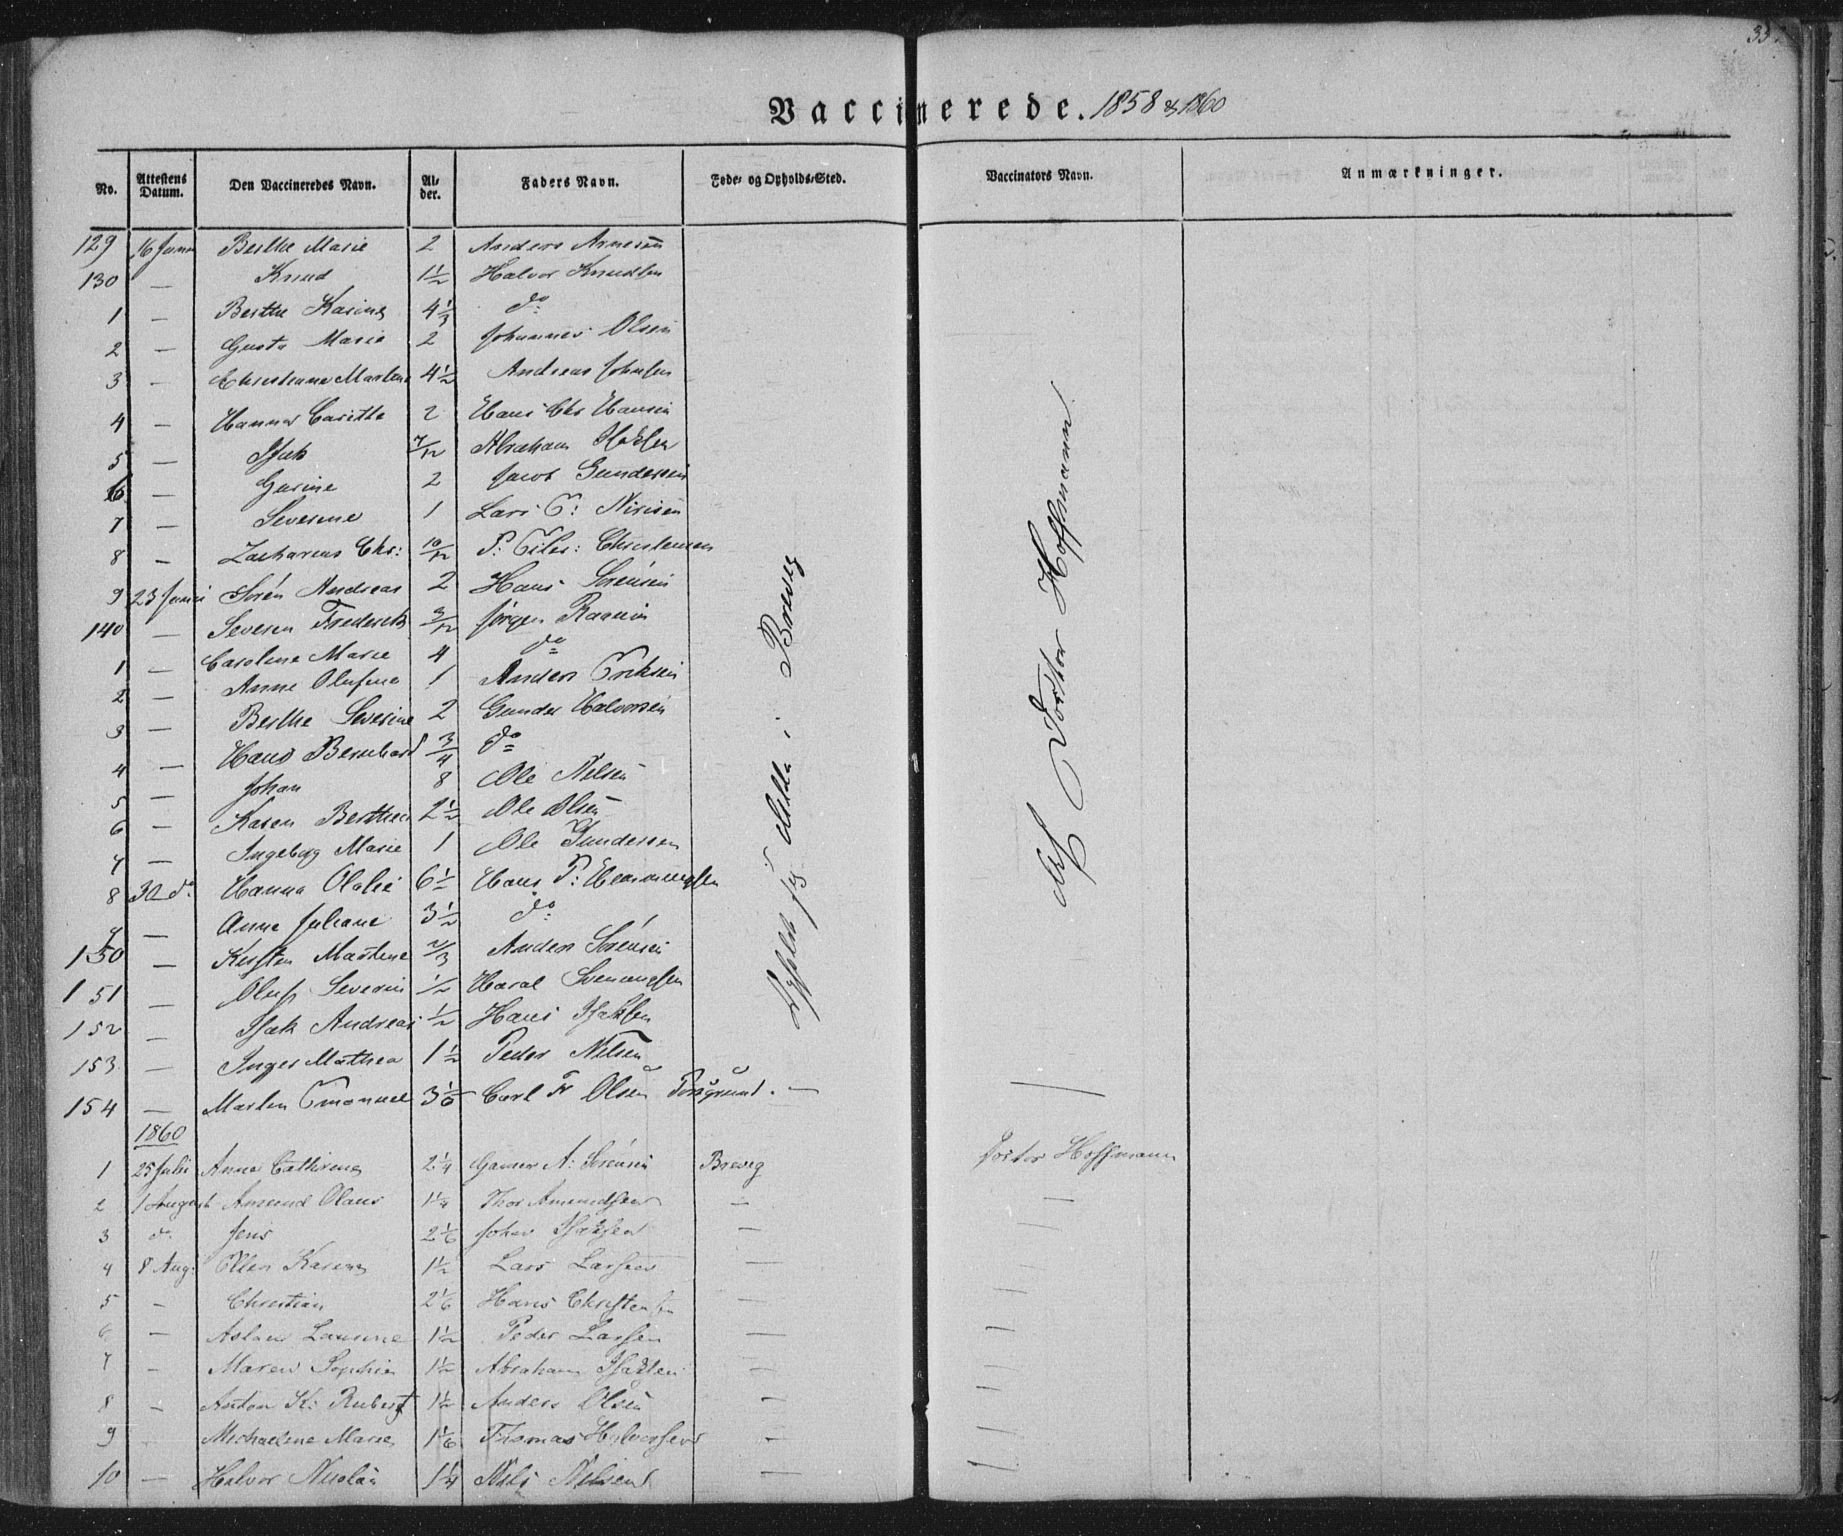 35.
Vaccinerede. 1858 & 1860
No. Attestens Datum. Den Vaccineredes Navn. Alder. Faders Navn. Føde- og Opholds-Sted. Vaccinators Navn. Anmærkninger.
129 16 Juni Berthe Marie 2 Anders Arnesen
130 — Knud 1½ Halvor Knudsen
1 — Berthe Karine 4⅓ do
2 — Gusta Marie 2 Johannes Olsen
3 — Christiane Martene 4½ Andreas Johnsen
4 — Hanna Caritte 2 Hans Chr Hansen
5 — Isak 7/12 Abraham
6 — Gurine 2 Jacob Gundersen
7 — Severine 1 Lars
8 — Zacharias Chr: 10/12 P: Christensen
9 23 Juni Søren Andreas 2 Hans Sørensen
140 — Severin Frederik 3/12 Jørgen
1 — Caroline Marie 4 do
2 — Anne Olufine 1 Anders Eriksen
3 — Berthe Severine 2 Gunder Halvorsen
4 — Hans Bernhard ¾ do
5 — Johan 8 Ole Nilsen
6 — Karen Berthea 2½ Ole Olsen
7 — Ingeborg Marie 1 Ole Gundersen
8 30 do Hanna Olalie 6½ Hans P: Hemmingsen
9 — Anne Juliane 3½ do
150 — Kirsten Martene 2/3 Anders Sørensen
151 — Oluf Severin ½ Haral Svenungsen
152 — Isak Andreas ½ Hans Isaksen
153 — Inger Mathea 1½ Peder Nilsen
154 — Martin Emanuel 3⅙ Carl Fr Olsen Porsgrund. —
i Brevig
Doctor Hoffmann
1860
1 25 Juli Anne Cathrine 2¼ Gunner A: Sørensen Brevig Doctor Hoffmann
2 1 August Amund Olaus 1¼ Thor Amundsen — —
3 do Jens 2⅙ Johan Isaksen — —
4 8 Aug: Ellen Karine 1½ Lars Larsen — —
5 — Christian 2⅙ Hans Christensen — —
6 — Aslau Laurine 1½ Peder Larsen — —
7 — Maren Sophie 1½ Abraham Isaksen — —
8 — Anton K: Rubert 1½ Anders Olsen — —
9 — Michaeline Marie 1⅙ Thomas Halvorsen — —
10 — Halvor Nicolai 1¼ Nils Nilsen — —